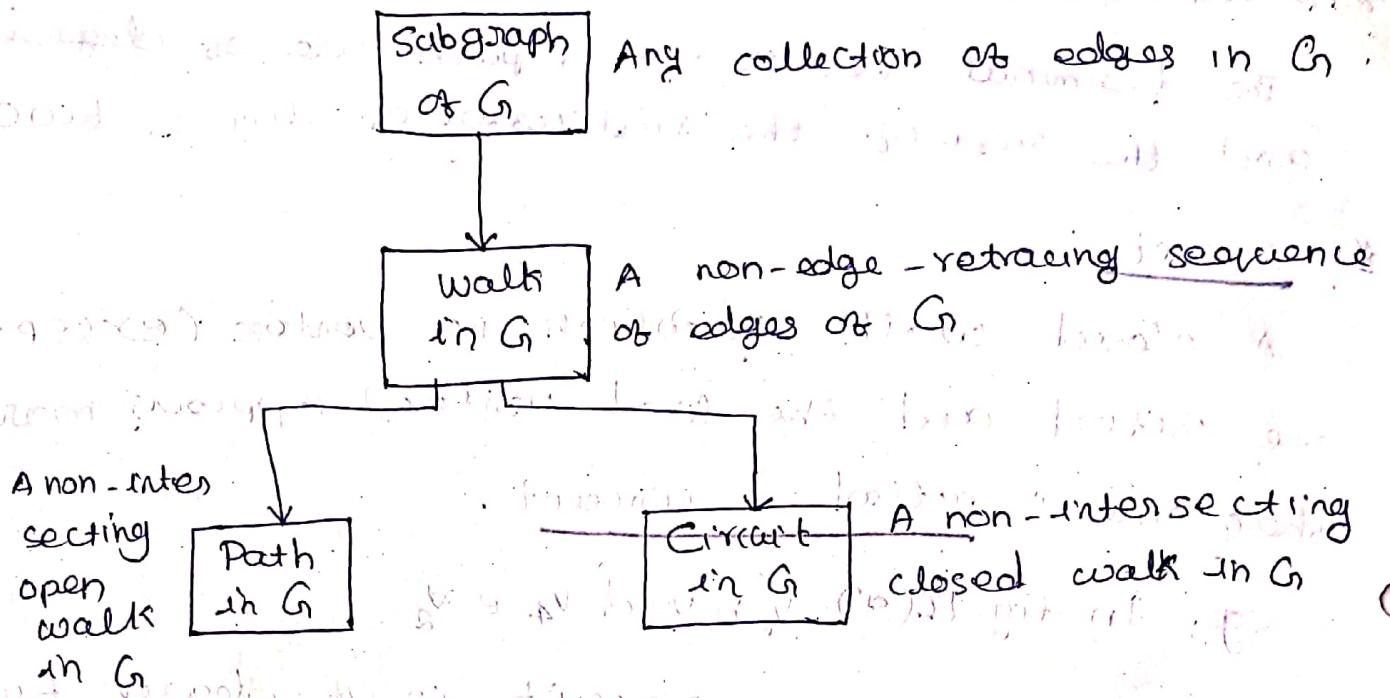 Subgraph
of G
Any collection of edges in G.
Walk
in G.
A non-edge-retracing sequence
of edges of G.
A non-inter
secting
open
walk
in G
Path
in G
Circuit
in G
A non-intersecting
closed walk in G